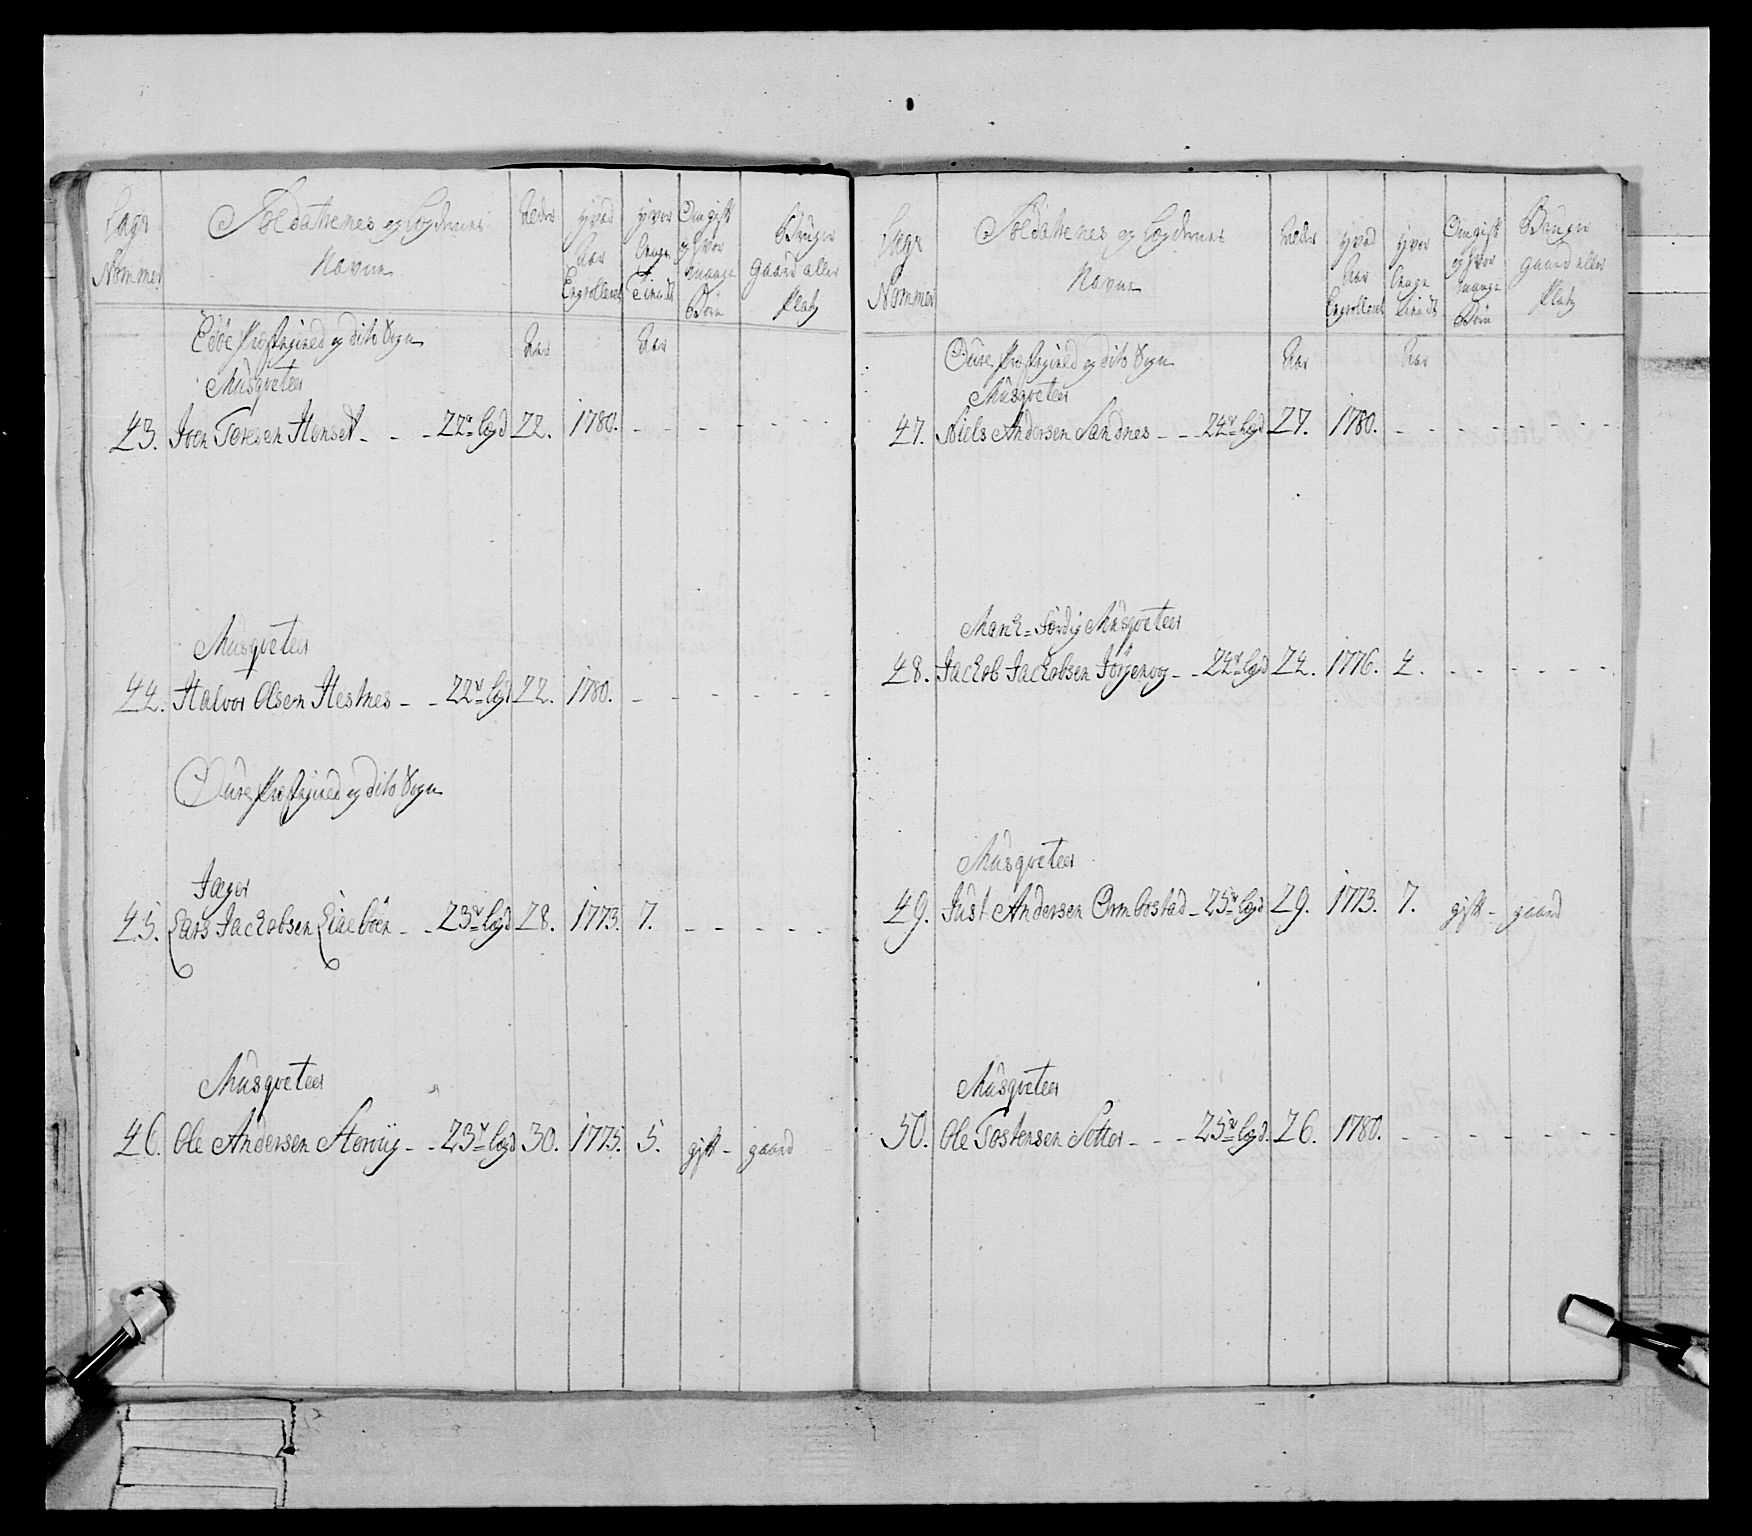 Lægs Nommer
Soldatternes og Lægdernes Navne
Alder
Hvad Aar Enrolleret
Hvor lenge Tient
Om gift og hvor mange Børn
Bruger gaard eller Platz
Edøe Præstegield og dito Sogn
Aar
Aar
Musqveteer
43. Iver Toresen Henset - - - 22de Lægd 22. 1780. - - - - - -
Musqveteer
44. Halvor Olsen Hestnes - - 22de Lægd 22. 1780. - - - - - -
Oure Præstegield og dito Sogn
Jæger
45. Lars Jackobsen - - 23de Lægd 28. 1773. 7. - - - - -
Musqveteer
46. Ole Andersen - - 23de Lægd 30. 1775. 5. gift - gaard
Lægs Nommer
Soldatternes og Lægdernes Navne
Alder
Hvad Aar Enrolleret
Hvor lenge Tient
Om gift og hvor mange Børn
Bruger gaard eller Platz
Oure Præstegield og dito Sogn
Aar
Aar
Musqveteer
47. Niels Andersen Sandnes - - 24de Lægd 27. 1780. - - - - - - -
March-færdig Musqveteer
48. Jackob Jackobsen Jørgenvog - - 24de Lægd 24. 1776. 4. - - - - -
Musqveteer
49. Just Andersen Ormbostad - 25de Lægd 29. 1773. 7. gift - gaard
Musqveteer
50. Ole Tostensen Setter - - - 25de Lægd. 26. 1780. - - - - - - -